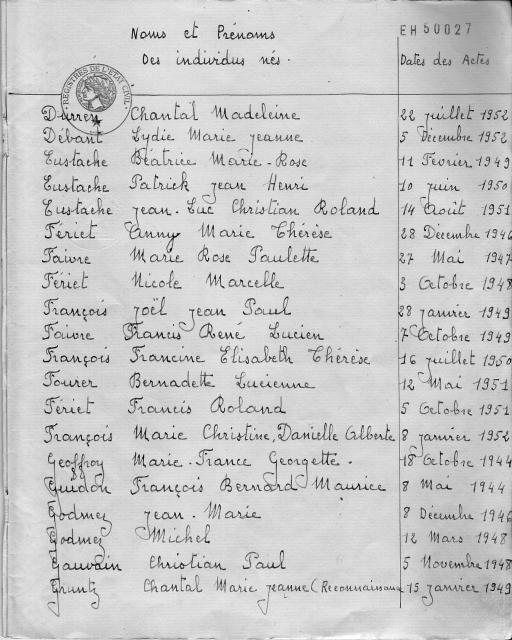 Noms et Prénoms
EH 50027
Des individus nés.
Dates des Actes
REGISTRES DE L'ETAT CIVIL
Durren Chantal Madeleine 22 juillet 1952
Débant Lydie Marie jeanne 5 Décembre 1952
Eustache Béatrice Marie-Rose 11 Février 1949
Eustache Patrick jean Henri 10 juin 1950
Eustache jean-Luc Christian Roland 14 Août 1951
Fériet Anny Marie Thérèse 28 Décembre 1946
Faivre Marie Rose Paulette 27 Mai 1947
Fériet Nicole Marcelle 3 Octobre 1948
François joël jean Paul 28 janvier 1949
Faivre Francis René Lucien 7 Octobre 1949
François Francine Elisabeth Thérèse 16 juillet 1950
Fourer Bernadette Lucienne 12 Mai 1951
Fériet Francis Roland 5 Octobre 1951
François Marie Christine, Danielle Alberte 8 janvier 1952
Geoffroy Marie-France Georgette. 18 Octobre 1944
Guidon François Bernard Maurice 8 Mai 1944
Godmez jean-Marie 8 Décembre 1946
Godmez Michel 12 Mars 1948
Gauvain Christian Paul 5 Novembre 1948
Gruntz Chantal Marie jeanne (Reconnaissance 15 janvier 1949